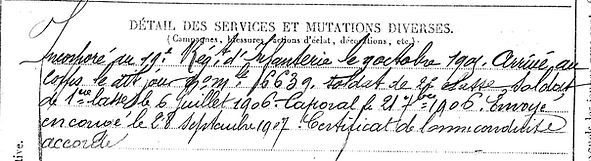 DÉTAIL DES SERVICES ET MUTATIONS DIVERSES.
(Campagnes, blessures, actions d'éclat, décorations, etc.)
Incorporé au 19e Régt d'Infanterie le 9 octobre 190. Arrivé au
corps le dit jour No Mle 6639. Soldat de 2e classe. Soldat
de 1ère classe le 6 juillet 1906. Caporal le 21 7bre 1906. Envoyé
en congé le 28 septembre 1907. Certificat de bonne conduite
accordé
tive.